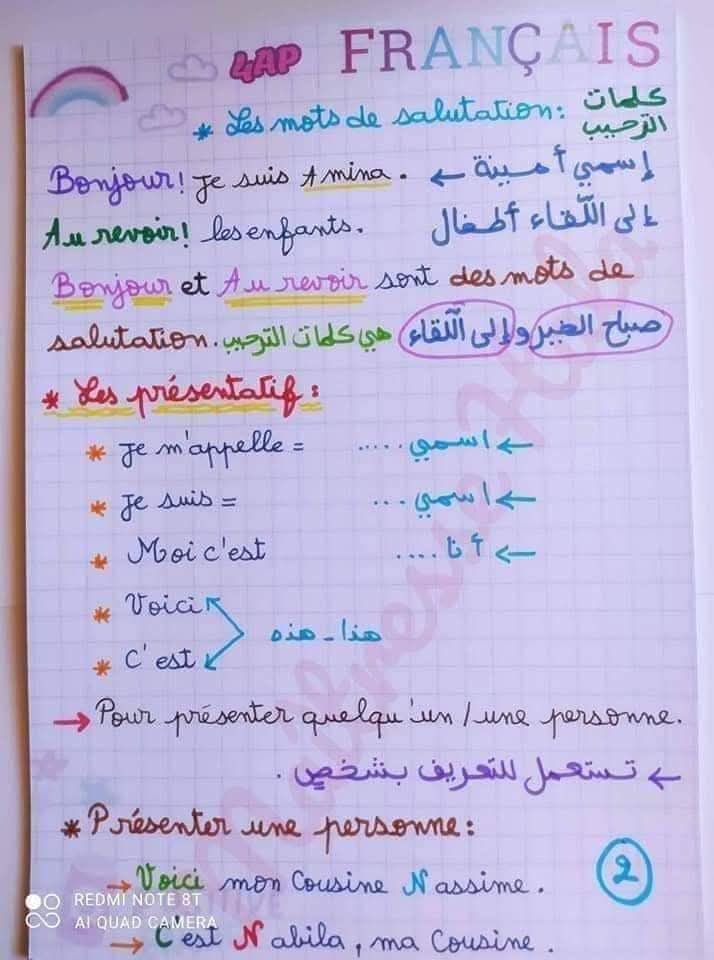 4AP FRANÇAIS
* Les mots de salutation: كلمات الترحيب
Bonjour! Je suis Amina. ← إسمي أمينة
Au revoir! les enfants. إلى اللّقاء أطفال
Bonjour et Au revoir sont des mots de
salutation. صباح الخير وإلى اللّقاء هي كلمات الترحيب
* Les présentatif:
* Je m'appelle = ← اسمي .....
* Je suis = ← اسمي ...
* Moi c'est ← أنا ....
* Voici
هذا - هذه
* C'est
→ Pour présenter quelqu'un / une personne.
← تستعمل للتعريف بشخصٍ .
* Présenter une personne:
→ Voici mon Cousine Nassime.
2
→ C'est Nabila, ma Cousine.
Maîtresse Hila
REDMI NOTE 8T
AI QUAD CAMERA